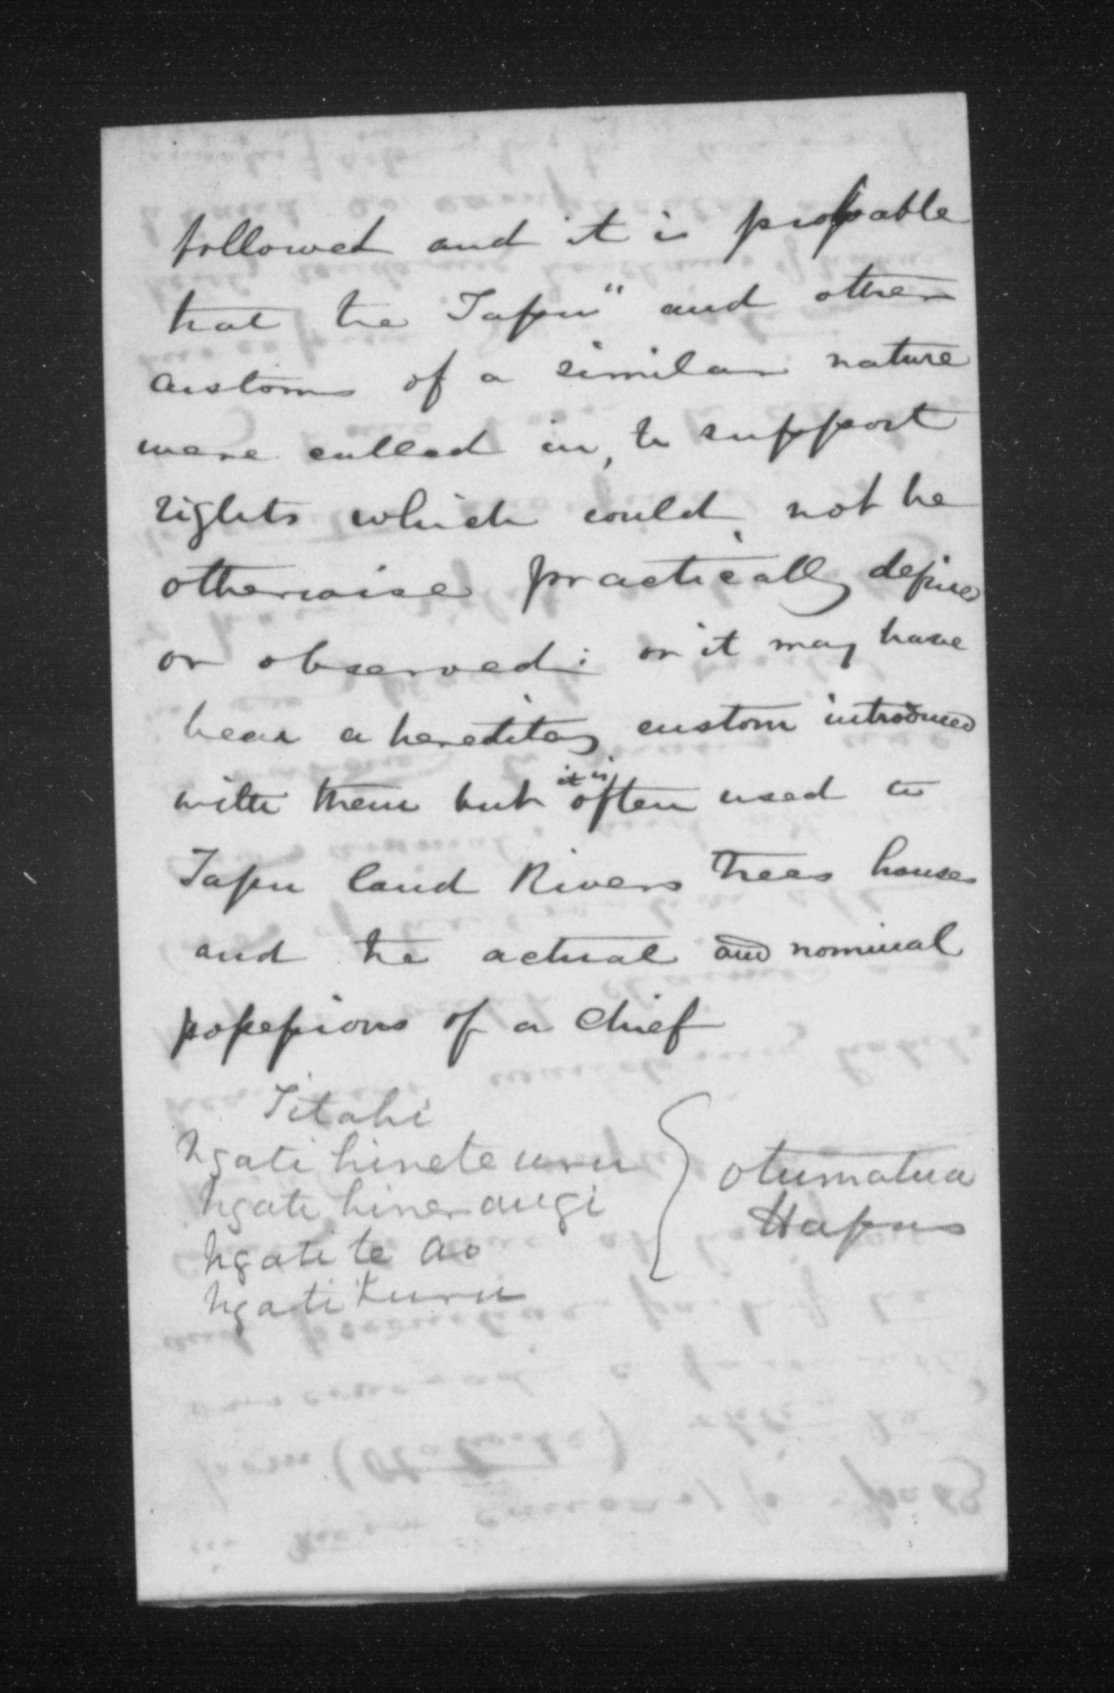 followed and it is probable
that the Tapu" and other
customs of a similar nature
were called in, to support
rights which could not be
otherwise practically define
or observed: or it may have
been a heredity custom introduced
with them but it is often used to
Tapu land Rivers trees houses
and the actual and nominal
possessions of a Chief
Titahi
Ngati hinete uru
Ngati hinerangi
Ngati te Ao
Ngati Kuru
} Otumatua
Hapus